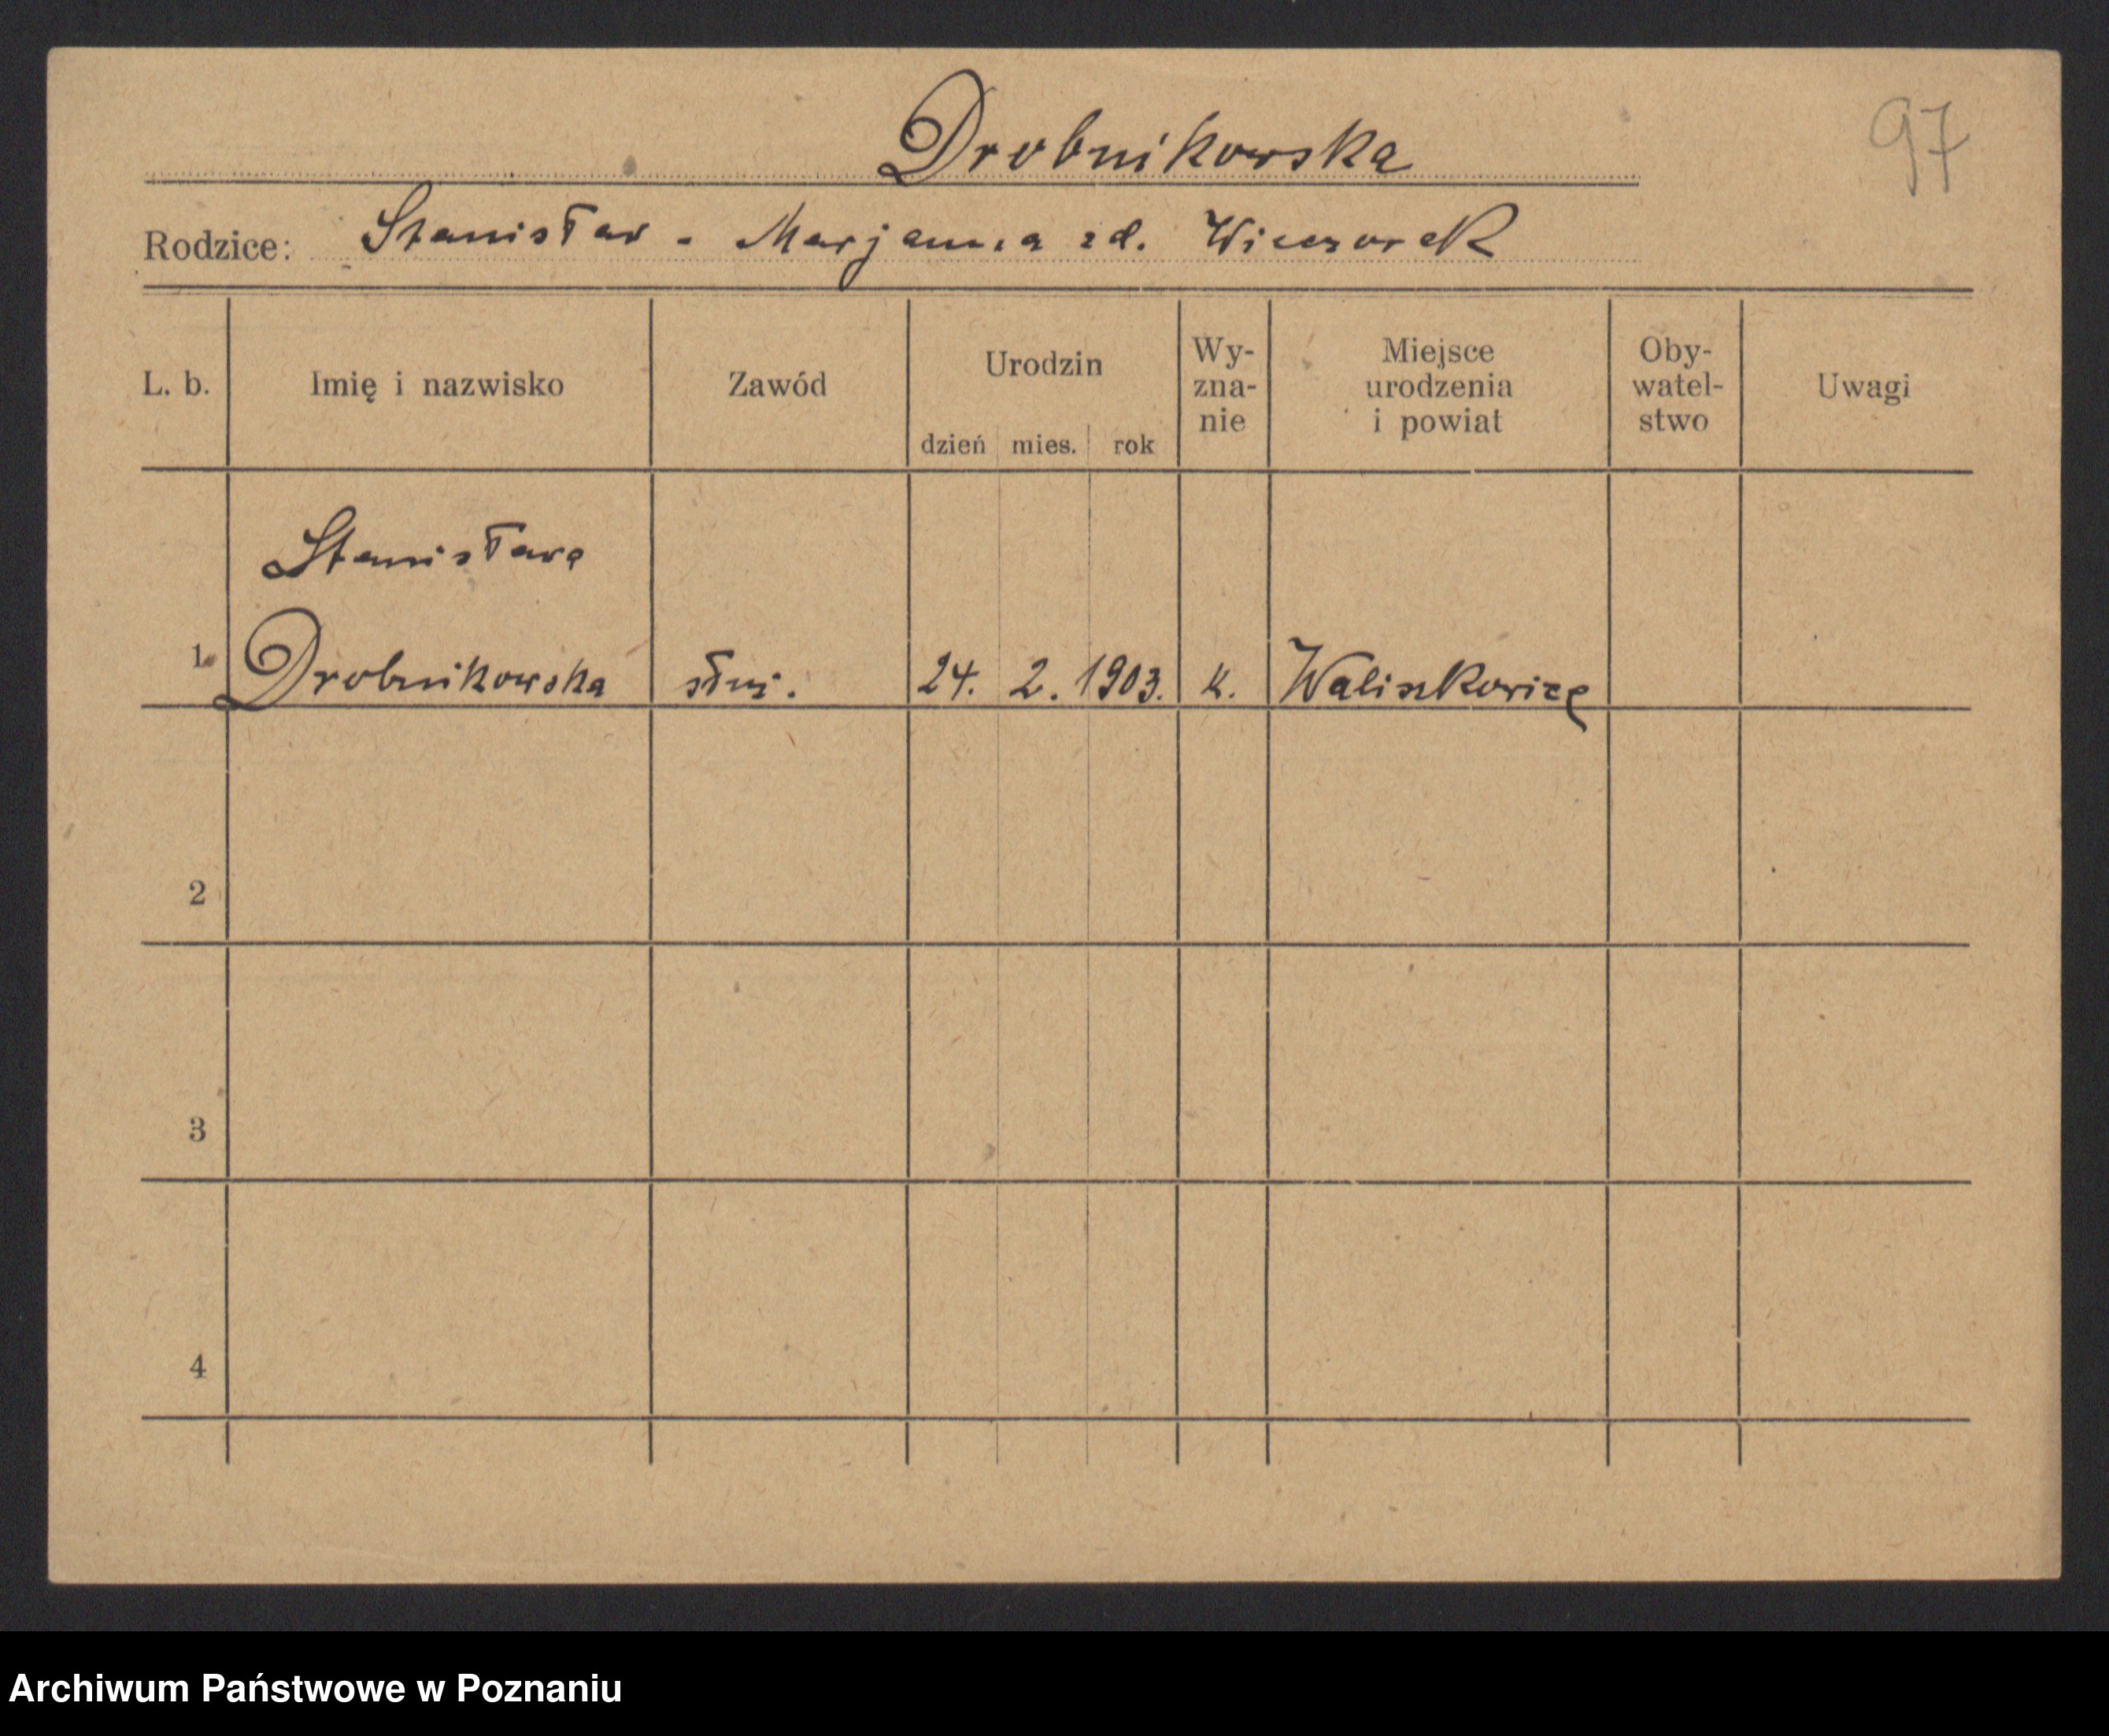 Drobnikowska
97
Rodzice: Stanisław - Marjanna zd. Wieczorek
L. b.
Imię i nazwisko
Zawód
Urodzin
dzień mies. rok
Wy-
zna-
nie
Miejsce
urodzenia
i powiat
Oby-
watel-
stwo
Uwagi
Stanisława
1. Drobnikowska służ. 24. 2. 1903. k. Waliszkowice
2
3
4
Archiwum Państwowe w Poznaniu